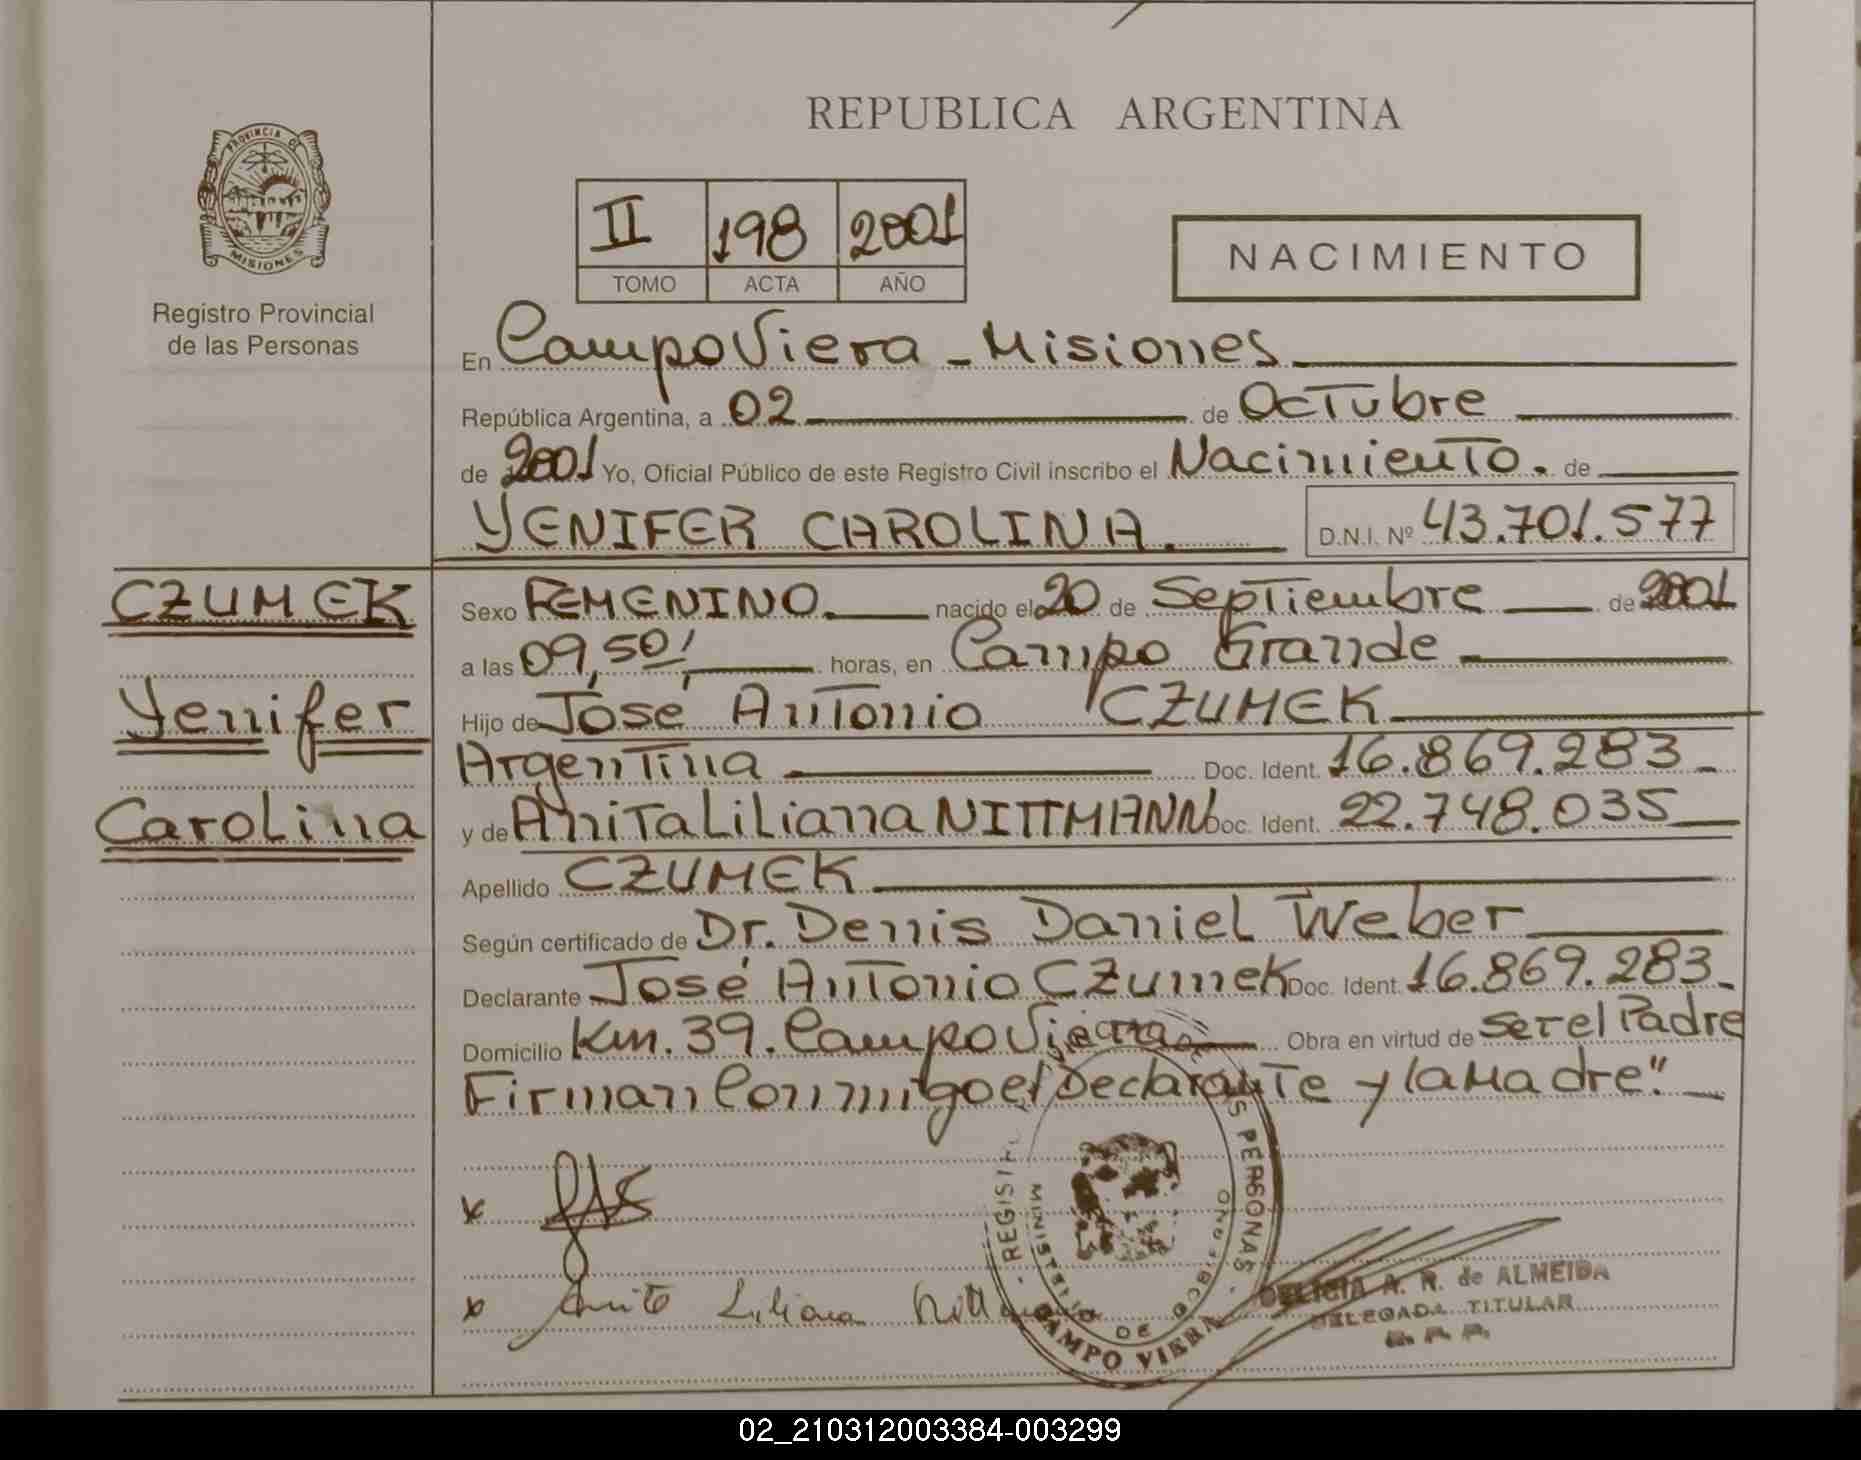 REPUBLICA ARGENTINA
PROVINCIA DE
MISIONES
Registro Provincial
de las Personas
II 198 2001
TOMO ACTA AÑO
NACIMIENTO
En Campo Viera - Misiones
República Argentina, a 02 de Octubre
de 2001 Yo, Oficial Público de este Registro Civil inscribo el Nacimiento. de
YENIFER CAROLINA. D.N.I. Nº 43.701.577
CZUMEK
Yenifer
Carolina
Sexo FEMENINO. nacido el 20 de Septiembre de 2001
a las 09,50' horas, en Campo Grande
Hijo de José Antonio CZUMEK
Argentina Doc. Ident. 16.869.283
y de Anita Liliana NITTMANN Doc. Ident. 22.748.035
Apellido CZUMEK
Según certificado de Dr. Denis Daniel Weber
Declarante José Antonio Czumek Doc. Ident. 16.869.283
Domicilio Km. 39. Campo Viera Obra en virtud de ser el Padre
Firman Conmigo el Declarante y la Madre".
x
x Anita Liliana Nittmann
REGISTRO S PERSONAS
MINISTERIO DE GOBIERNO
CAMPO VIERA
DELICIA A. R. de ALMEIDA
DELEGADA TITULAR
02_210312003384-003299